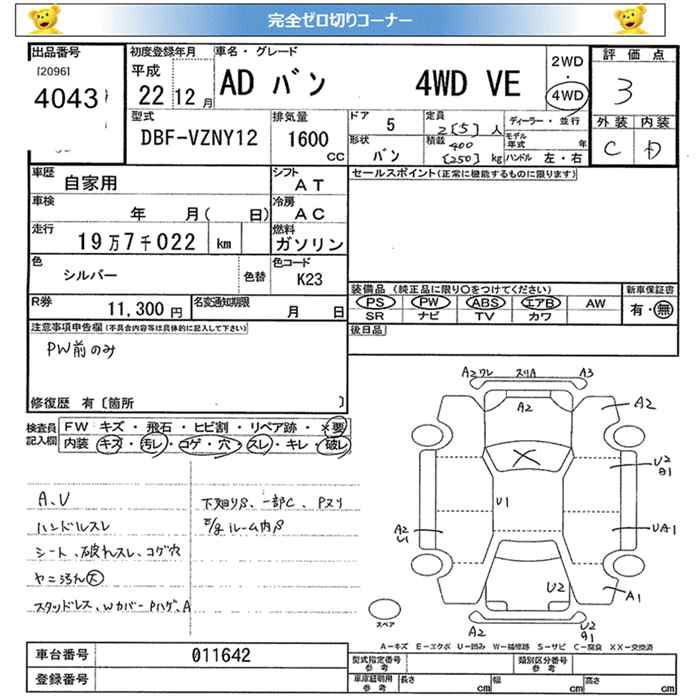 完全ゼロ切りコーナー
出品番号 初度登録年月 車名・グレード 2WD・4WD 評価点
[2096] 4043 平成22 12月 AD バン 4WD VE 3
型式 排気量 ドア 5 定員 2[5]人 ディーラー・並行 外装 内装
DBF-VZNY12 1600cc 形状 バン 積載 400[250]kg モデル年式 年 ハンドル 左・右 C D
車歴 自家用 シフト AT セールスポイント(正常に機能するものに限ります)
車検 年 月( 日) 冷房 AC
走行 19万7千022 km 燃料 ガソリン
色 シルバー 色替 色コード K23
装備品 (純正品に限り○をつけてください) 新車保証書
R券 11,300円 名変通知期限 月 日 PS PW ABS エアB AW 有・無
SR ナビ TV カワ
注意事項申告欄(不具合内容等は具体的に記入して下さい) 後日品
PW前のみ
修復歴 有〔箇所 〕
検査員記入欄 FW キズ・飛石・ヒビ割・リペア跡・×要
内装 キズ・汚レ・コゲ・穴・スレ・キレ・破レ
A、U
ハンドルスレ
シート、破れスレ、コゲ穴
ヤニ
スタッドレス、Wカバー Pハゲ、A
下廻りS、一部C、Pヌリ
ルーム内S
A2 ワレ スリA A3
A2 A2
U2
U1
A2 U1 UA1
U2 A1
A2 U2
スペア
A-キズ E-エクボ U-凹み W-補修跡 S-サビ C-腐食 XX-交換済
車台番号 011642 型式指定番号 参考 類別区分番号 参考
登録番号 車庫証明用 参考 長さ cm 幅 cm 高さ cm